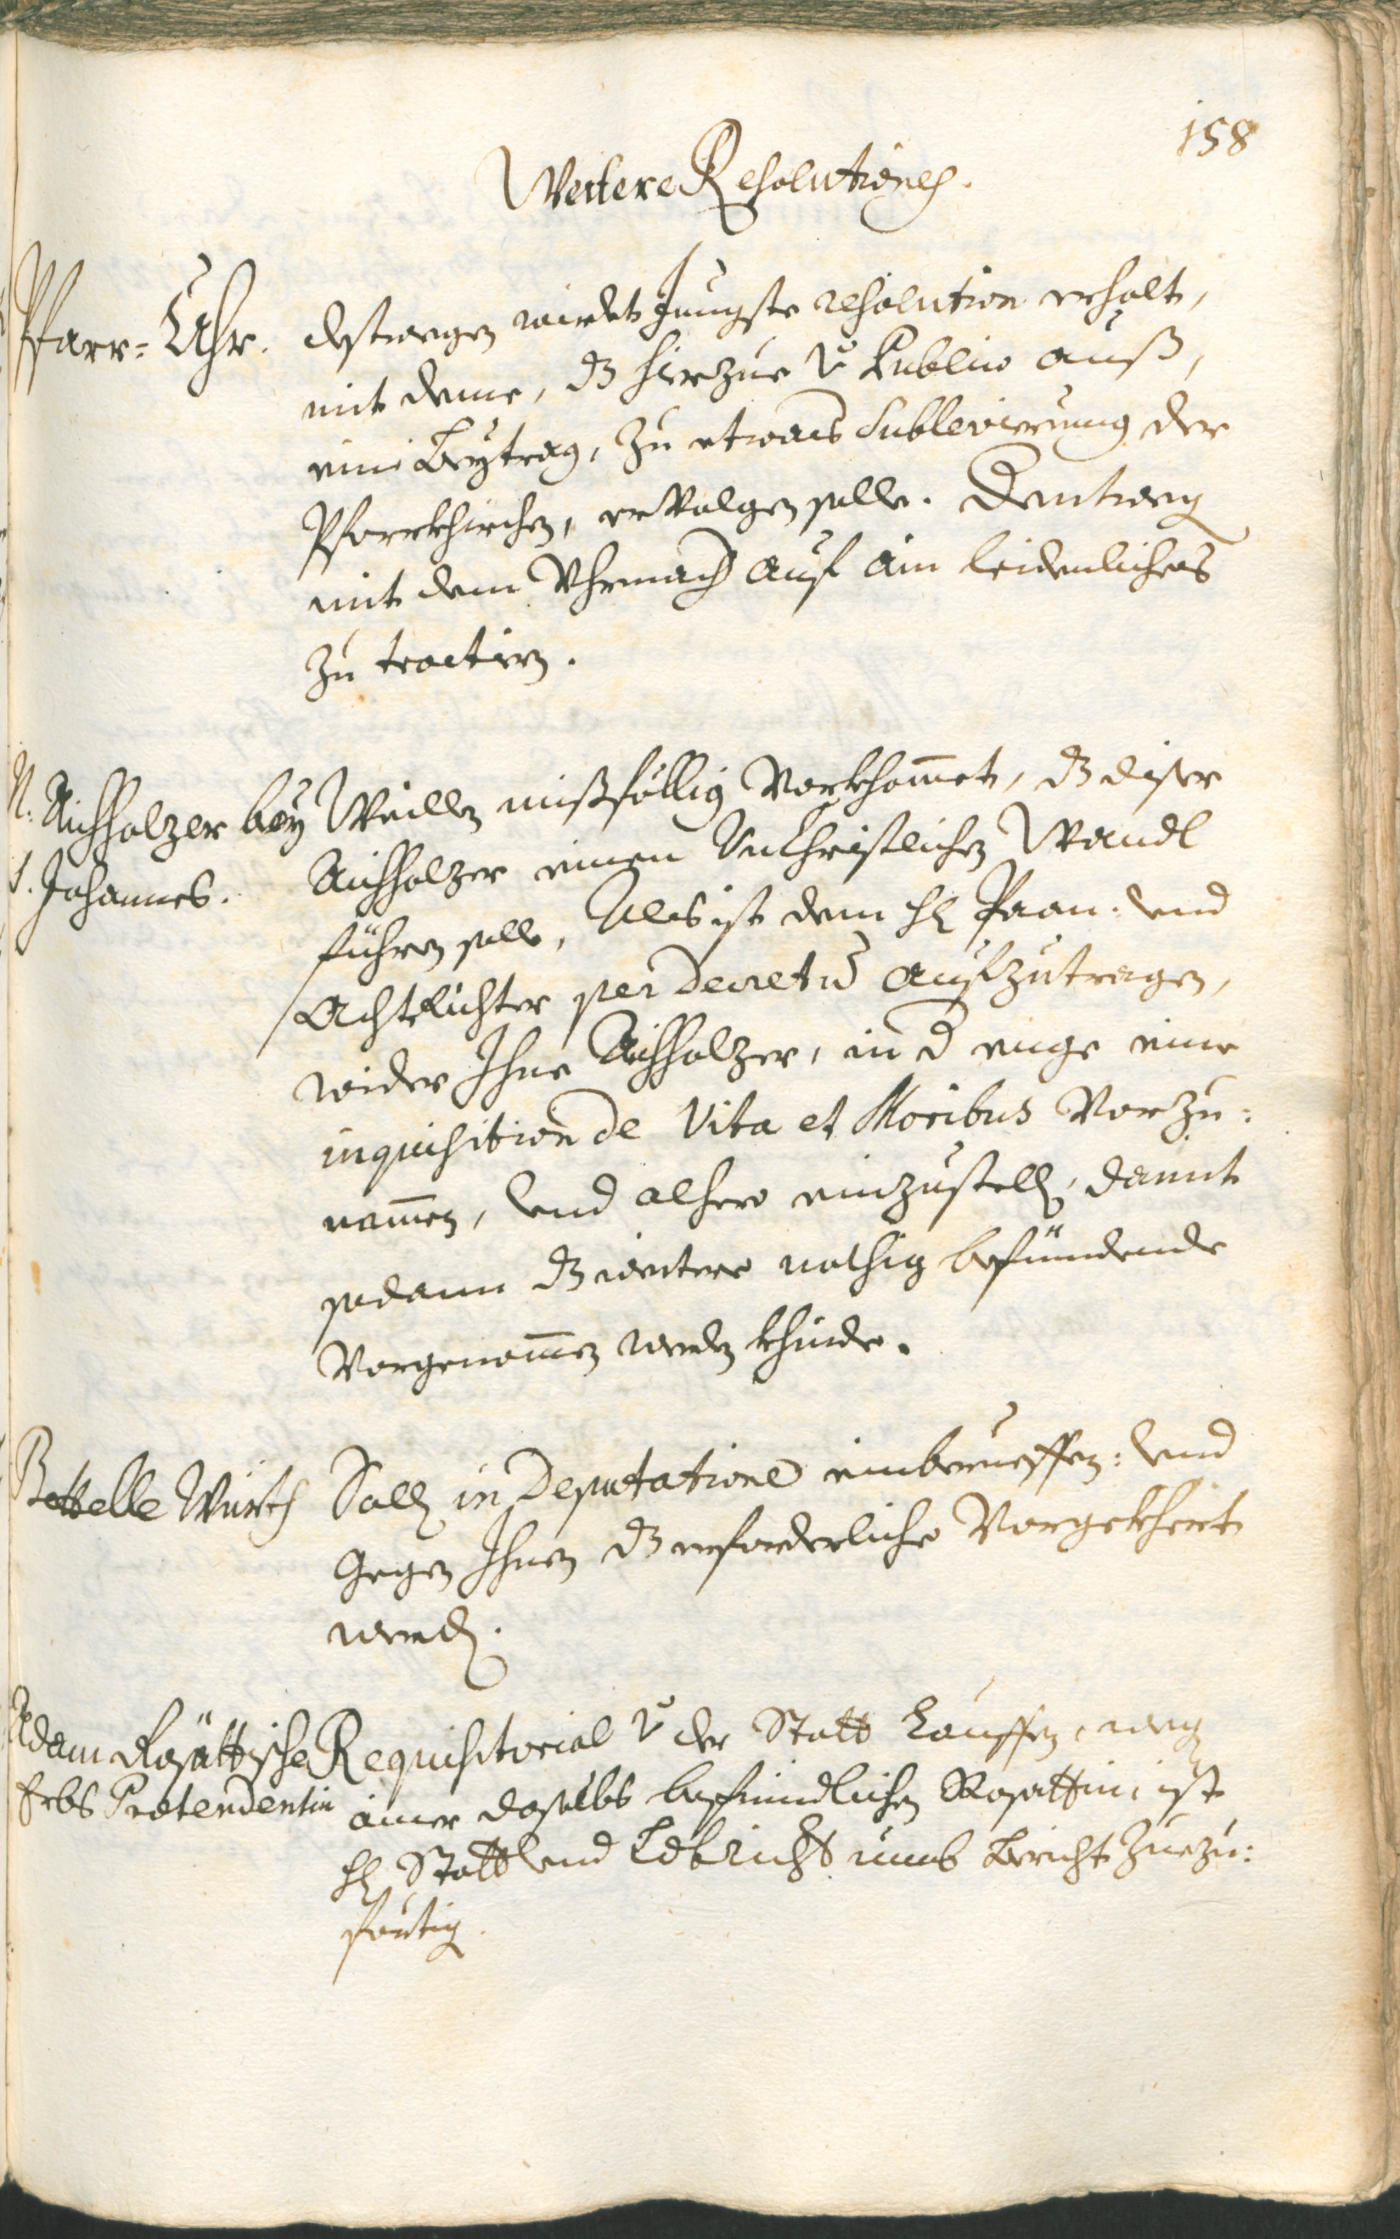 158
Weitere Resolutiones.
Pfarr= Uhr.
destwegen wirdt Jüngste resolution erholt,
mit deme, dz hierzue v Publico auß,
ein Beytrag, zu etwas Sublevierung der
Pfarrkhirchen, ervolgen solle. Dentweg
mit dem Uhrmach auf ain leidenliches
zu tractirn.
N. Aichholzer bey
S. Johannes.
Weillen mißföllig Vorkhommet, dz diser
Aichholzer einen Unchristlichen Wandl
führen solle, Als ist dem hl Paan: und
Achtrichter per Decretum aufzutragen,
wider Ihne Aichholzer, in d enge eine
inquisition de Vita et Moribus Vorzu=
nemmen, und alhero einzustelln, damit
sodann dz weitere nothig befündende
Vorgenommen werden khinde.
Bettelle Würth
Solln in Deputatione einberueffen: und
Gegen Ihnen dz erforderliche Vorgekhert
werden.
Adam Rosättische
Erbs Prætendentin
Requisitorial v der Statt Lauffen, weg
ainer daselbs befindlichen Rosattin, ist
hl Statt und Ldtricht umb Bericht zuezu=
förtig.